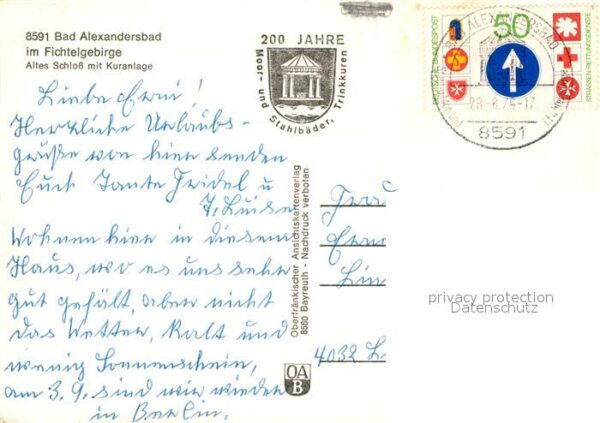 8591 Bad Alexandersbad
im Fichtelgebirge
Altes Schloß mit Kuranlage
200 JAHRE
Moor- und Stahlbäder, Trinkkuren
DEUTSCHE BUNDESPOST
50
STRASSEN-RETTUNGSDIENSTE
BAD ALEXANDERSBAD
28.-8.75-17
8591
Liebe Erni!
Herzliche Urlaubs-
grüße von hier senden
Euch Tante Fridel u
T. Luise
Wohnen hier in diesem
Haus, wo es uns sehr
gut gefällt, aber nicht
das Wetter, kalt und
wenig Sonnenschein,
am 3.9. sind wir wieder
in Berlin.
Oberfränkischer Ansichtskartenverlag
8580 Bayreuth - Nachdruck verboten
OA
B
Frau
Erni
Lin
4032 L
privacy protection
Datenschutz